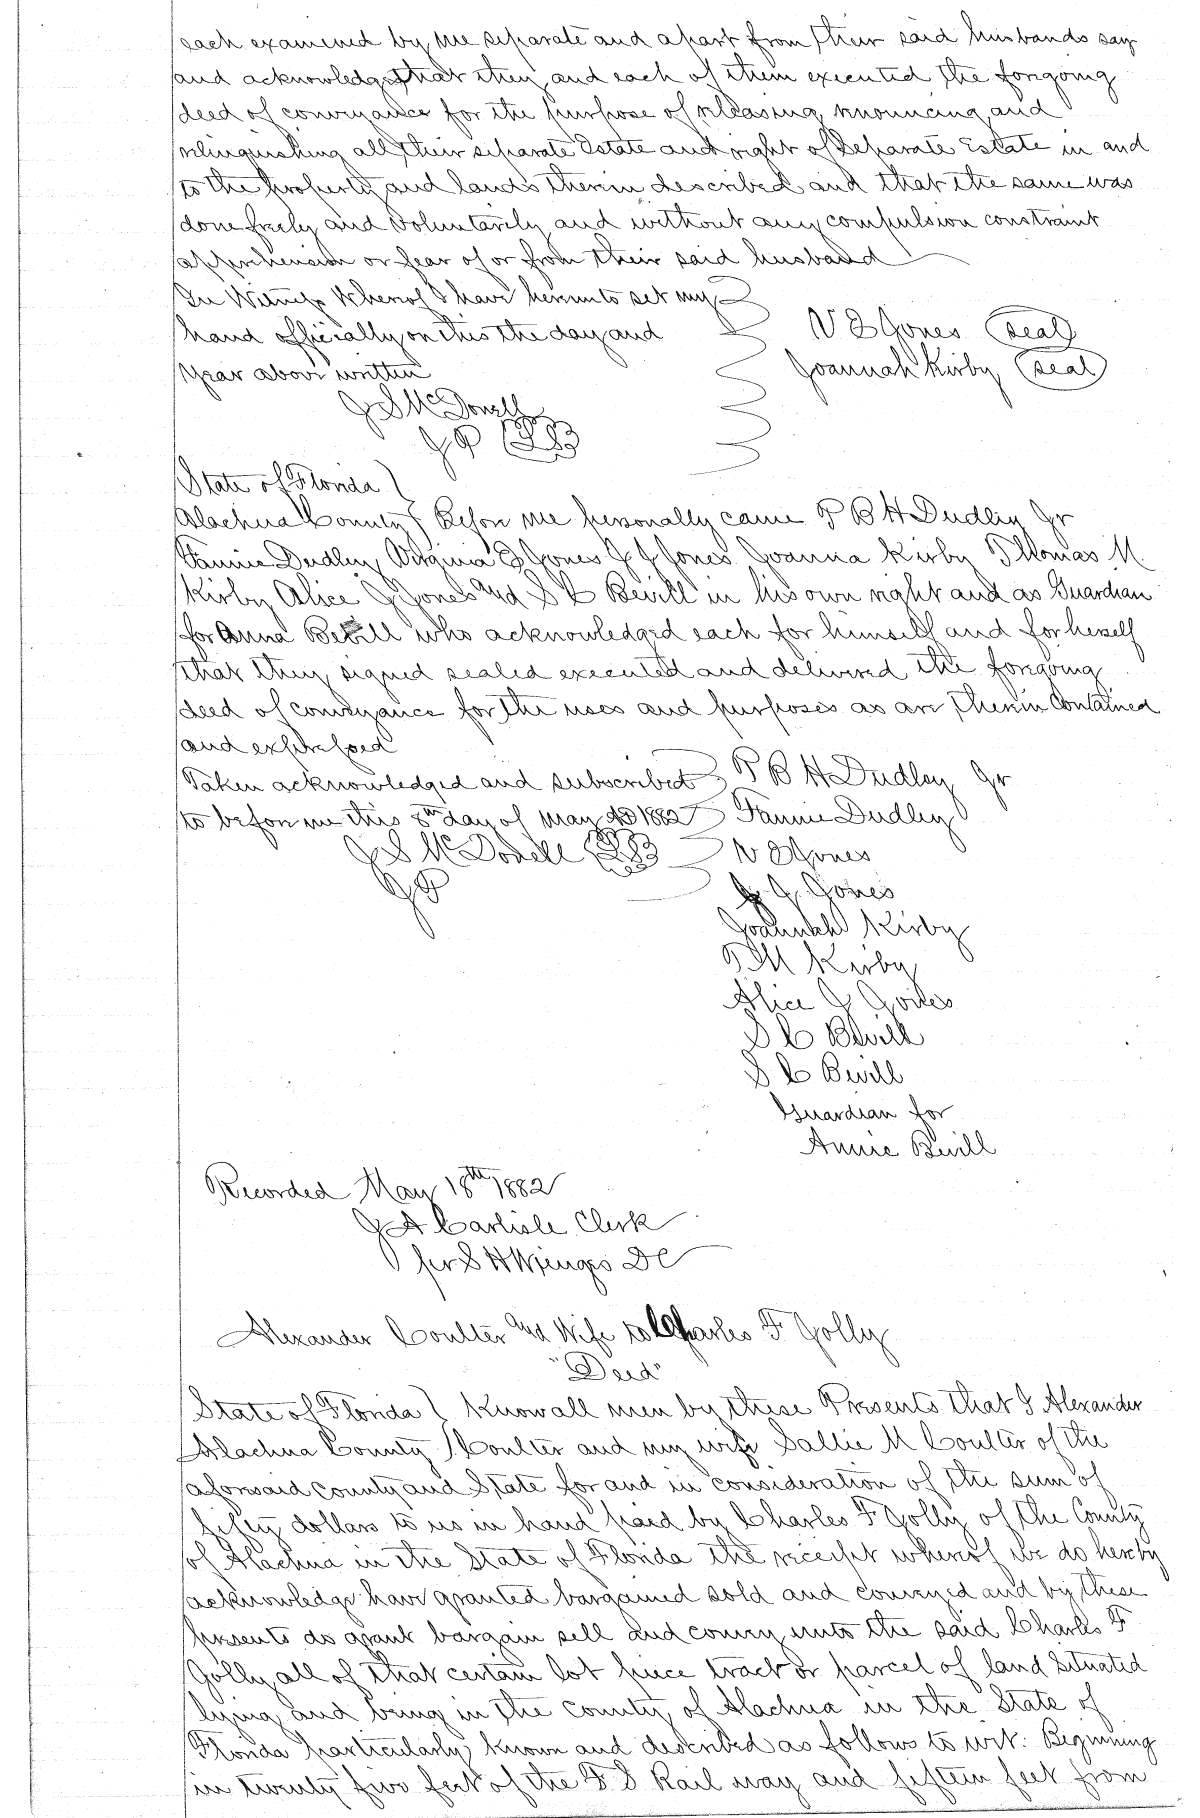 each examined by me separate and apart from their said husbands say
and acknowledge that they and each of them executed the foregoing
deed of conveyance for the purpose of releasing renouncing and
relinquishing all their separate Estate and right of Separate Estate in and
to the property and lands therein described and that the same was
done freely and Voluntarily and without any compulsion constraint
apprehension or fear of or from their said husband
In Witness Whereof I have hereunto set my
hand officially on this the day and
year above written
V E Jones seal
Joannah Kirby seal
J S McDonell
J P
State of Florida
Alachua County Before me personally came P B H Dudley Jr
Fannie Dudley Virginia E Jones J J Jones Joanna Kirby Thomas M.
Kirby Alice J Jones and S C Bevill in his own right and as Guardian
for Anna Bevill who acknowledged each for himself and for herself
that they signed sealed executed and delivered the foregoing
deed of conveyance for the uses and purposes as are therein Contained
and expressed
Taken acknowledged and subscribed
to before me this 8th day of May AD 1882
J S McDonell
J P
P B H Dudley Jr
Fannie Dudley
V E Jones
J. J. Jones
Joannah Kirby
T M Kirby
Alice J
S C Bevill
S C Bevill
Guardian for
Annie Bevill
Recorded May 18th 1882
J A Carlisle Clerk
per S H Wienges DC
Alexander Coulter and Wife to Charles F Jolly
"Deed"
State of Florida Know all men by these Presents that I Alexander
Alachua County Coulter and my wife Sallie M Coulter of the
aforesaid county and State for and in consideration of the sum of
fifty dollars to us in hand paid by Charles F Jolly of the County
of Alachua in the State of Florida the receipt whereof we do hereby
acknowledge have granted bargained sold and conveyed and by these
presents do grant bargain sell and convey unto the said Charles F
Jolly all of that certain lot piece tract or parcel of land Situated
lying and being in the County of Alachua in the State of
Florida particularly known and described as follows to wit: Beginning
in twenty five feet of the F. S Rail way and fifteen feet from